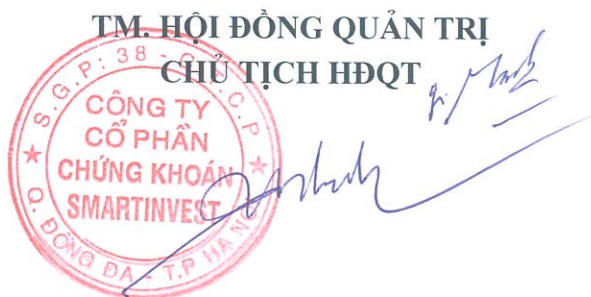 TM. HỘI ĐỒNG QUẢN TRỊ
CHỦ TỊCH HĐQT
S.G.P: 38 - C.T.C.P
CÔNG TY
CỔ PHẦN
CHỨNG KHOÁN
SMARTINVEST
Q. ĐỐNG ĐA - T.P HÀ NỘI